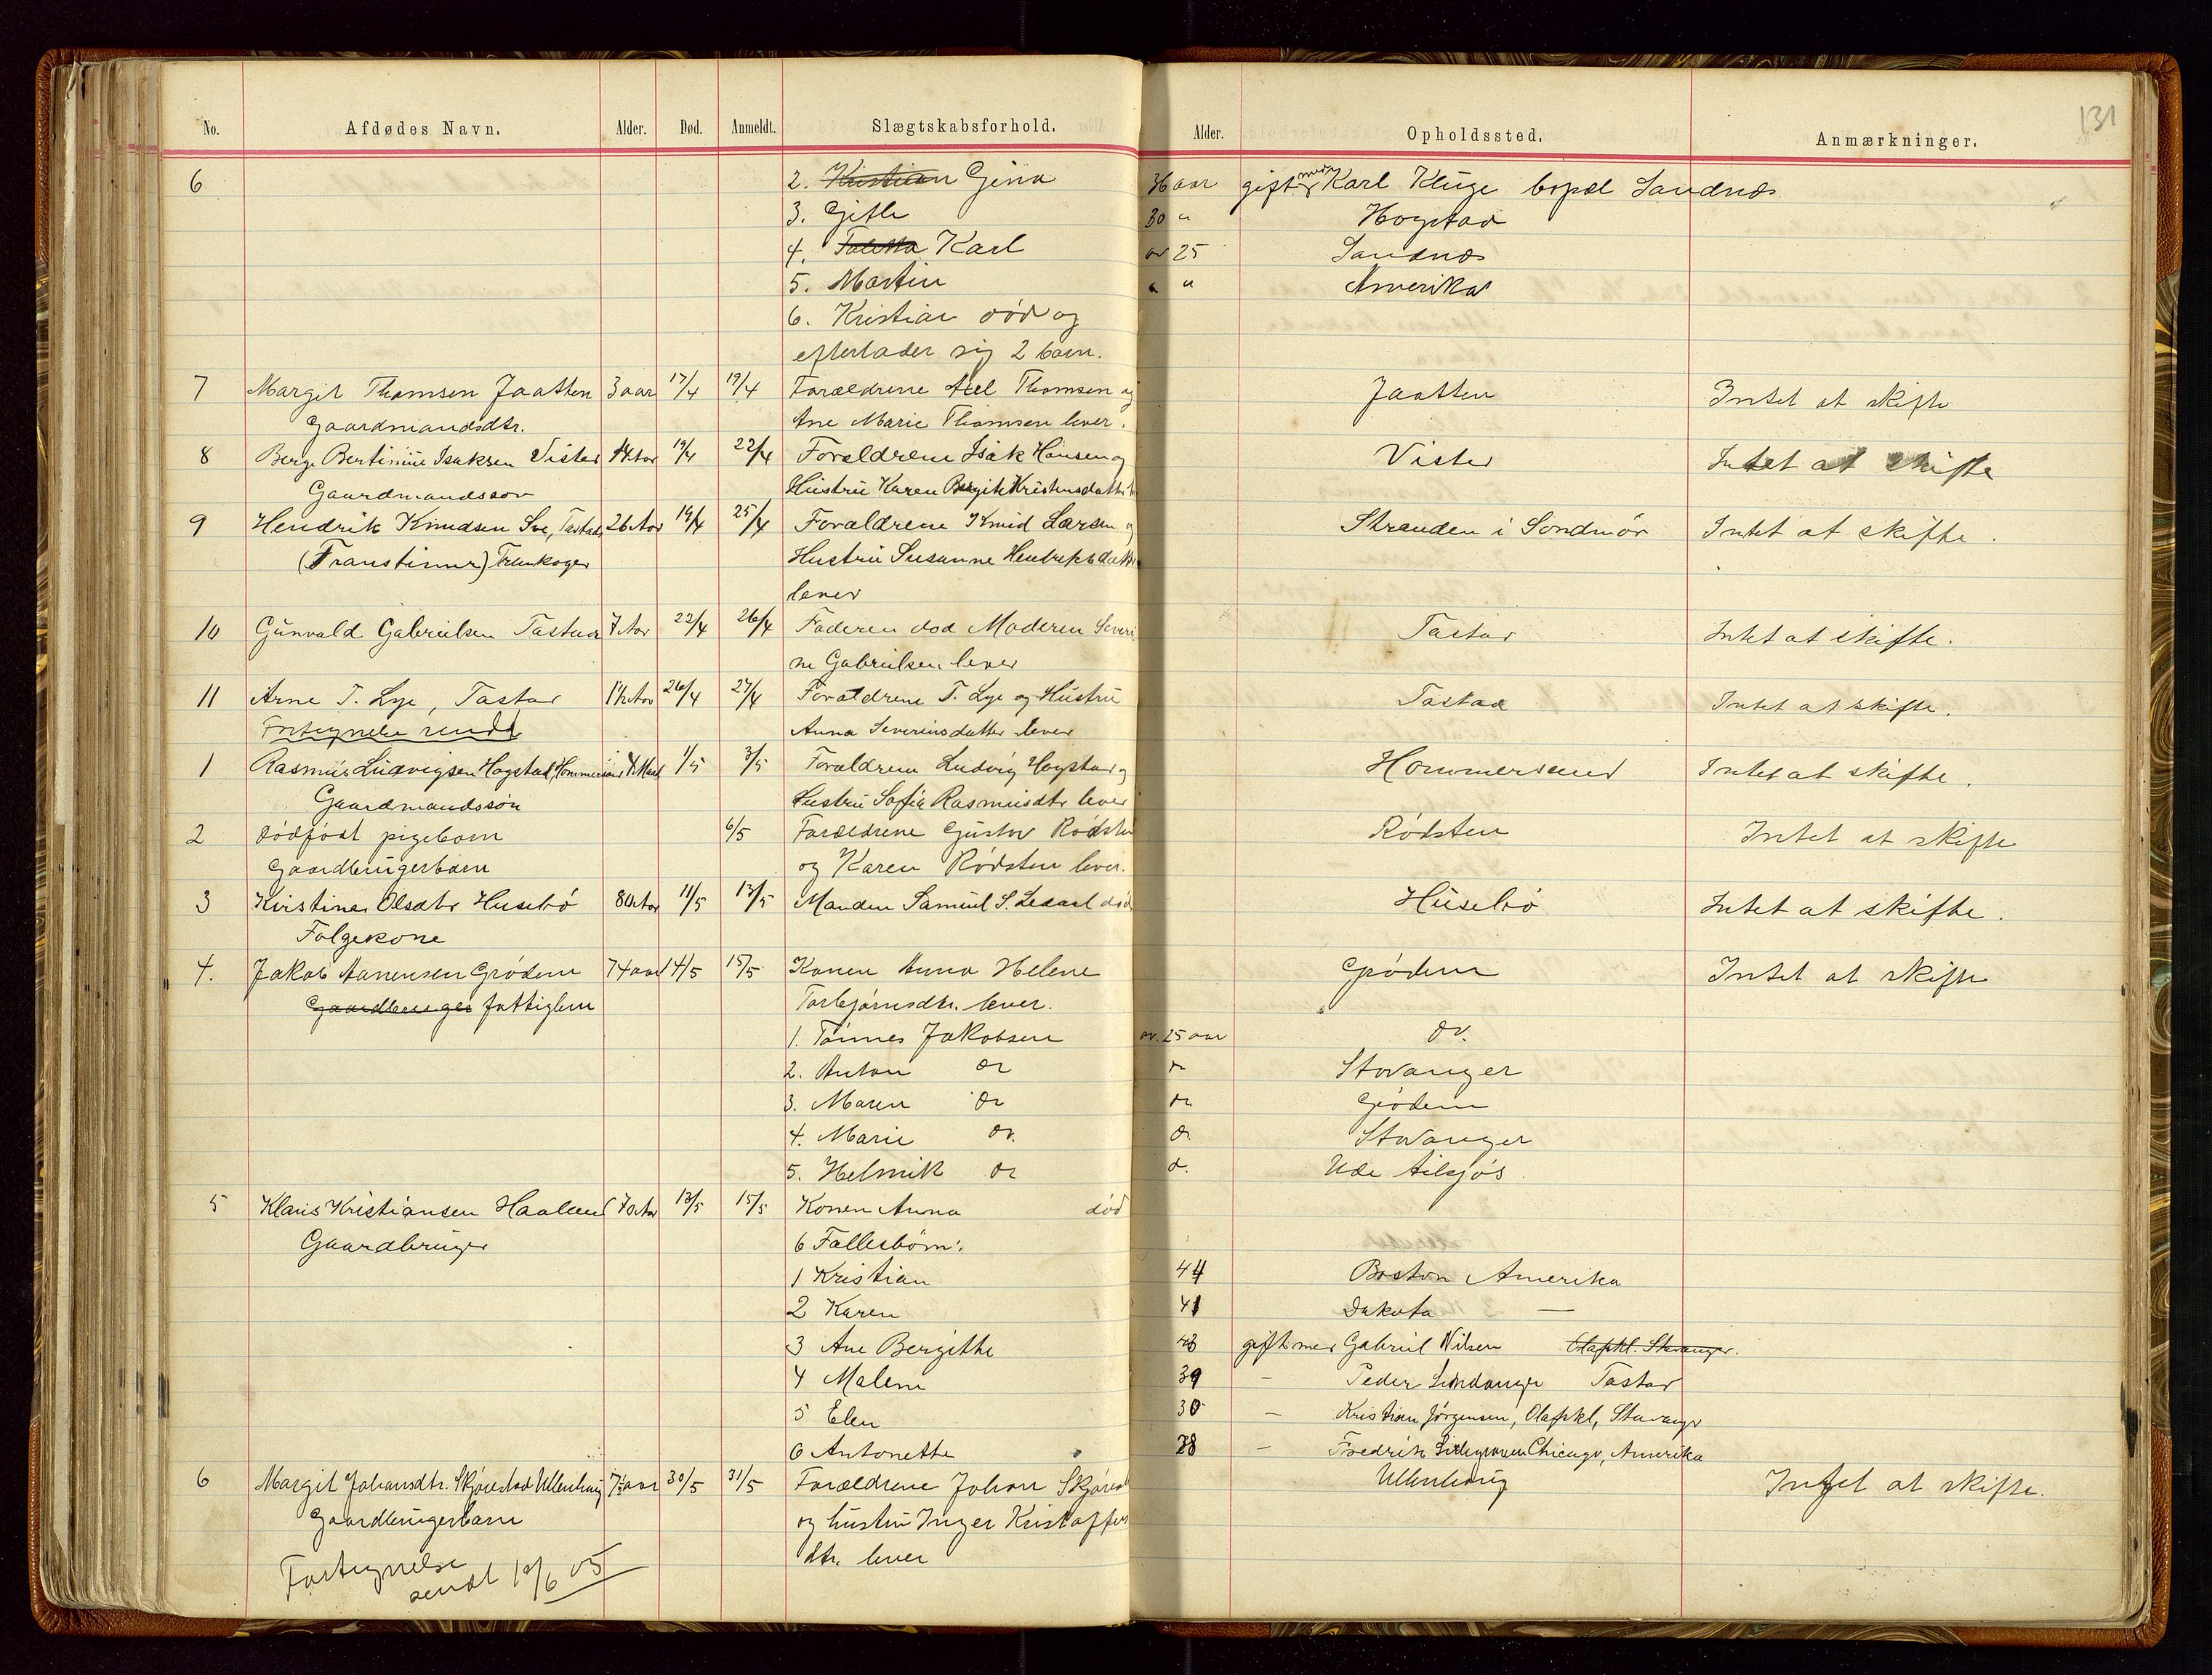 131
No. Afdødes Navn. Alder. Død. Anmeldt. Slægtskabsforhold. Alder. Opholdssted. Anmærkninger.
6 2. Kristian Gina 36 aar gift med Karl Kluge bopæl Sandnæs
3. Gitle 30 " Hogstad
4. Karl ov 25 Sandnæs
5. Martin " " Amerika
6. Kristian død og
efterlader sig 2 barn.
7 Margit Thomsen Jaatten 3 aar 17/4 19/4 Forældrene Axel Thomsen og Jaatten Intet at skifte
Gaardmandsdtr. Ane Marie Thomsen lever.
8 Berge Bertinius Isaksen Vistad 19/4 22/4 Forældrene Isak Hansen og Vistad Intet at skifte
Gaardmandssøn Hustru Karen Bergite Kristensdatter
9 Hendrik Knudsen Sve, Tastad 26 Aar 19/4 25/4 Forældrene Knud Larsen og Stranden i Søndmør Intet at skifte.
(Transtimer) Trankoger Hustru Susanne Hendriksdatter
lever
10 Gunvald Gabrielsen Tastad 7 Aar 22/4 26/4 Faderen død Moderen Severi Tastad Intet at skifte.
ne Gabrielsen lever
11 Arne T. Lye, Tastad 1½ Aar 26/4 27/4 Forældrene T. Lye og Hustru Tastad Intet at skifte.
Fortegnelse sendt Anna Severinsdatter lever
1 Rasmus Ludvigsen Hogstad, Hommersand 1/5 3/5 Forældrene Ludvig Hogstad og Hommersand Intet at skifte.
Gaardmandssøn Hustru Sofia Rasmusdtr lever
2 dødfødt pigebarn 6/5 Forældrene Gustav Rødsten Rødsten Intet at skifte
Gaardbrugerbarn og Karen Rødsten lever.
3 Kristine Olsdtr Husebø 80 Aar 11/5 13/5 Manden Samuel S. død Husebø Intet at skifte.
Følgekone
4. Jakob Aanensen Grødem 74 aar 14/5 15/5 Konen Anna Helene Grødem Intet at skifte
Gaardbruger fattiglem Torbjørnsdtr. lever.
1. Tønnes Jakobsen ov. 25 aar do.
2. Anton do do Stavanger
3. Maren do do Grødem
4. Marie do. do Stavanger
5. Helmik do do. Ude tilsjøs
5 Klaus Kristiansen Haaland 70 Aar 13/5 15/5 Konen Anna død
Gaardbruger 6 Fællesbørn:
1 Kristian 44 Boston Amerika
2 Karen 41 Dakota —
3 Ane Bergithe gift med Gabriel Nilsen Olafskl. Stavanger.
4 Malene 39 — Peder Tastad
5 Elen 30 — Kristian Jørgensen, Olafskl, Stavanger
6 Antonette 28 — Fredrik Chicago, Amerika
6 Margit Johansdtr. Skjørestad Ullenhaug 7½ aar 30/5 31/5 Forældrene Johan Skjørest Ullenhaug Intet at skifte.
Gaardbrugerbarn og hustru Inger Kristoffer
dtr. lever
Fortegnelse
sendt 10/6 05